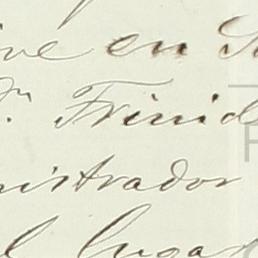 ive en S
n. Trinid
nistrador
el lugar